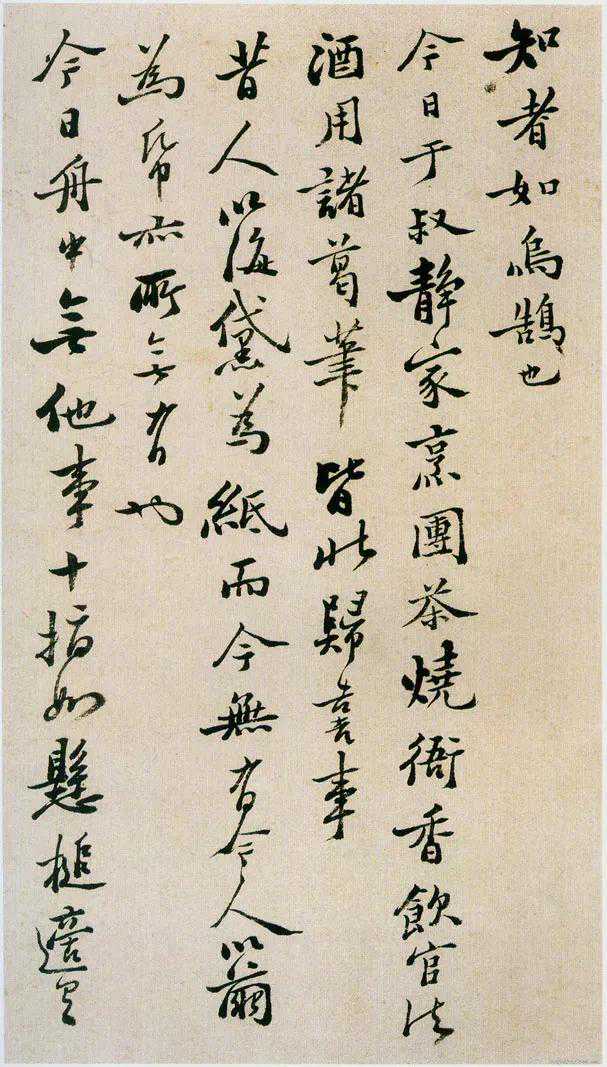 知者如嗚鵠也
今日于叔静家烹團茶燒衙香飲官法
酒用諸葛筆皆北歸喜事
昔人以海黛為紙而今無有今人以繭
為帋亦所無有也
今日舟中無他事十指如懸槌適